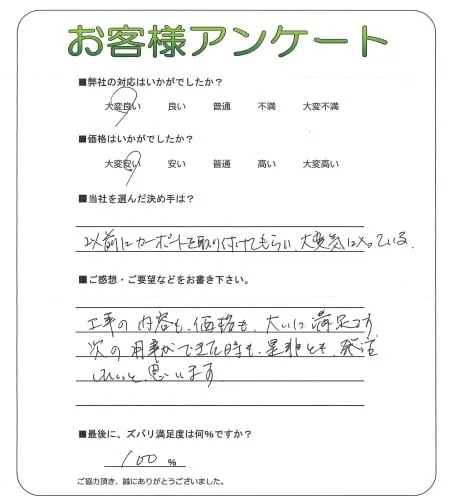 お客様アンケート
■弊社の対応はいかがでしたか？
大変良い 良い 普通 不満 大変不満
■価格はいかがでしたか？
大変安い 安い 普通 高い 大変高い
■当社を選んだ決め手は？
以前にカーポートを取り付けてもらい、大変気に入っている。
■ご感想・ご要望などをお書き下さい。
工事の内容も、価格も、大いに満足です
次の用事ができた時も、是非とも、発注
したいと思います
■最後に、ズバリ満足度は何%ですか？
100 %
ご協力頂き、誠にありがとうございました。